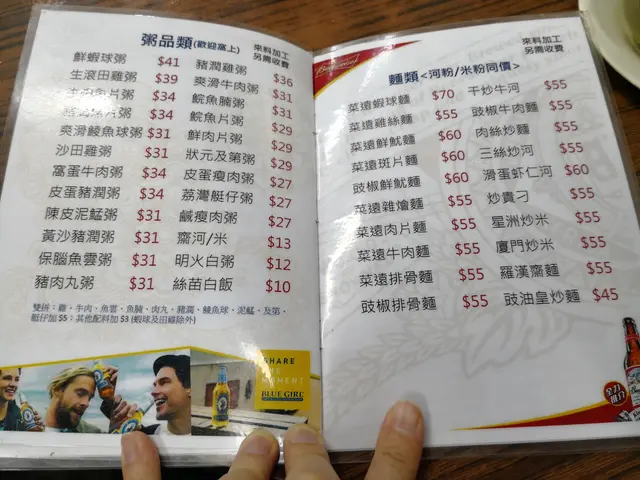 粥品類(歡迎窩上)
來料加工
另需收費
鮮蝦球粥 $41
生滾田雞粥 $39
片粥 $34
片粥 $34
爽滑鯪魚球粥 $31
沙田雞粥 $31
窩蛋牛肉粥 $34
皮蛋豬潤粥 $34
陳皮泥鯭粥 $31
黃沙豬潤粥 $31
保腦魚雲粥 $31
豬肉丸粥 $31
豬潤雞粥 $36
爽滑牛肉粥 $31
鯇魚腩粥 $31
鯇魚片粥 $29
鮮肉片粥 $29
狀元及第粥 $29
皮蛋瘦肉粥 $27
荔灣艇仔粥 $27
鹹瘦肉粥 $27
齋河/米 $13
明火白粥 $12
絲苗白飯 $10
雙拼：雞、牛肉、魚雲、魚腩、肉丸、豬潤、鯪魚球、泥鯭、及第、
艇仔加 $5：其他配料加 $3 (蝦球及田雞除外)
SHARE
THE
MOMENT
BLUE GIRL
Budweiser
麵類<河粉/米粉同價>
來料加工
另需收費
菜遠蝦球麵 $70
菜遠雞絲麵 $55
菜遠鮮魷麵 $60
菜遠斑片麵 $60
豉椒鮮魷麵 $60
菜遠雜燴麵 $55
菜遠肉片麵 $55
菜遠牛肉麵 $55
菜遠排骨麵 $55
豉椒排骨麵 $55
干炒牛河 $55
豉椒牛肉麵 $55
肉絲炒麵 $55
三絲炒河 $55
滑蛋蝦仁河 $60
炒貴刁 $55
星洲炒米 $55
廈門炒米 $55
羅漢齋麵 $55
豉油皇炒麵 $45